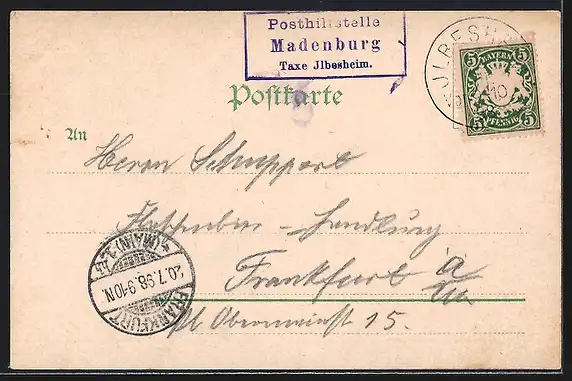 Posthilfstelle
Madenburg
Taxe Jlbesheim.
JLBESH
5 BAYERN 5
10
5 PFENNIG 5
Postkarte
An
Herrn Schuppert
Handlung
Frankfurt a/M
Obermainstr 15.
FRANKFURT (MAIN) 1
26.7.98. 9-10N